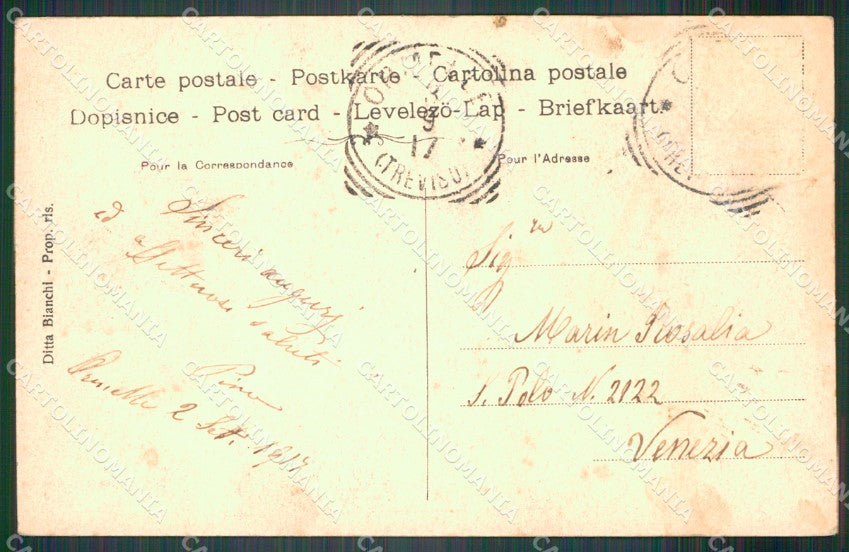 Carte postale - Postkarte - Cartolina postale
Dopisnice - Post card - Levelező-Lap - Briefkaart.
Pour la Correspondance
Pour l'Adresse
ORMELLE
3
17
(TREVISO)
Ditta Bianchi - Prop. ris.
Sinceri auguri
ed affettuosi saluti
Pino
2 Set. 1917
Sig ra
Marin Rosalia
S. Polo N. 2122
Venezia
CARTOLINOMANIA